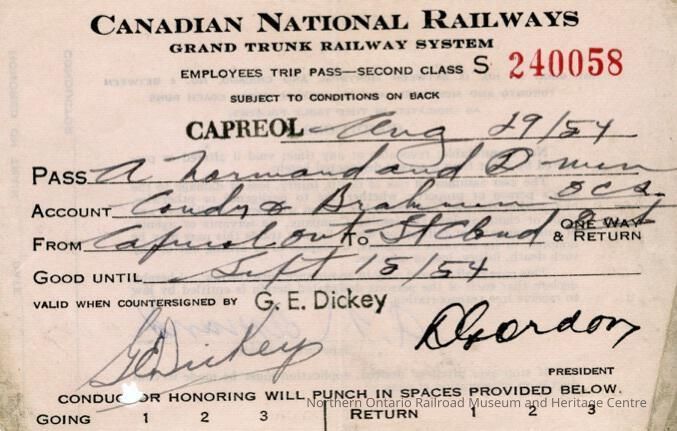 CANADIAN NATIONAL RAILWAYS
GRAND TRUNK RAILWAY SYSTEM
EMPLOYEES TRIP PASS—SECOND CLASS S 240058
SUBJECT TO CONDITIONS ON BACK
CAPREOL Aug 29/54
PASS A Normand and
ACCOUNT Condr & Brakemen
FROM Capreol Ont TO St Cloud & RETURN ONE WAY
GOOD UNTIL Sept 15/54
VALID WHEN COUNTERSIGNED BY G. E. Dickey
GE Dickey DGordon
PRESIDENT
CONDUCTOR HONORING WILL PUNCH IN SPACES PROVIDED BELOW.
Northern Ontario Railroad Museum and Heritage Centre
GOING 1 2 3 RETURN 1 2 3